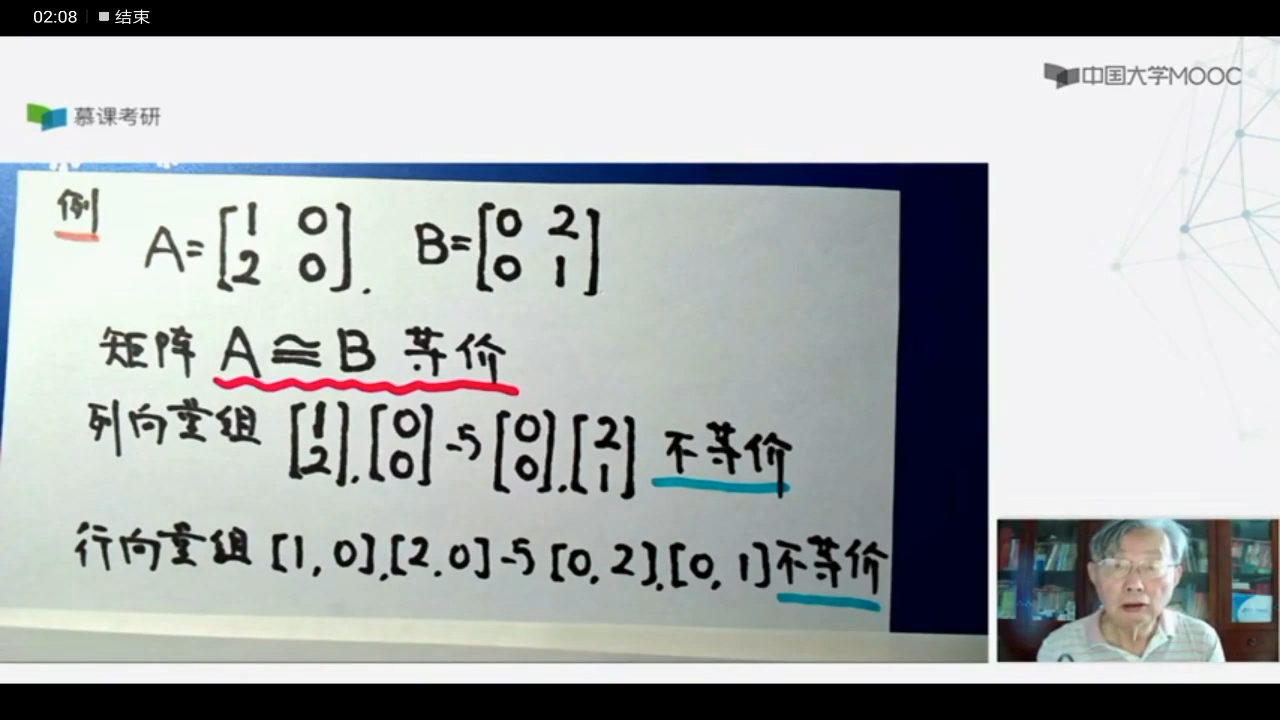 02:08 结束
中国大学MOOC
慕课考研
例 A=[1 0
2 0]. B=[0 2
0 1]
矩阵 A≅B 等价
列向量组 [1
2],[0
0]与[0
0],[2
1] 不等价
行向量组 [1,0],[2,0]与[0,2],[0,1]不等价